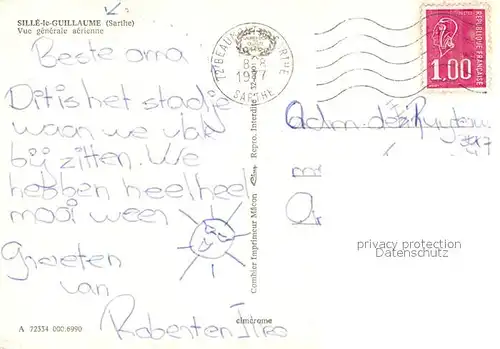 SILLÉ-le-GUILLAUME (Sarthe)
Vue générale aérienne
Beste oma
Dit is het stadje
waar we vlak
bij zitten. We
hebben heel heel
mooi weer
Groeten
van
Robert en
A 72334 000.6990
cimcrome
Combier Imprimeur Mâcon
Repro. Interdite
72 BEAUMONT SARTHE
SARTHE
REPUBLIQUE FRANÇAISE
1,00
Adm. de Ruyter
privacy protection
Datenschutz